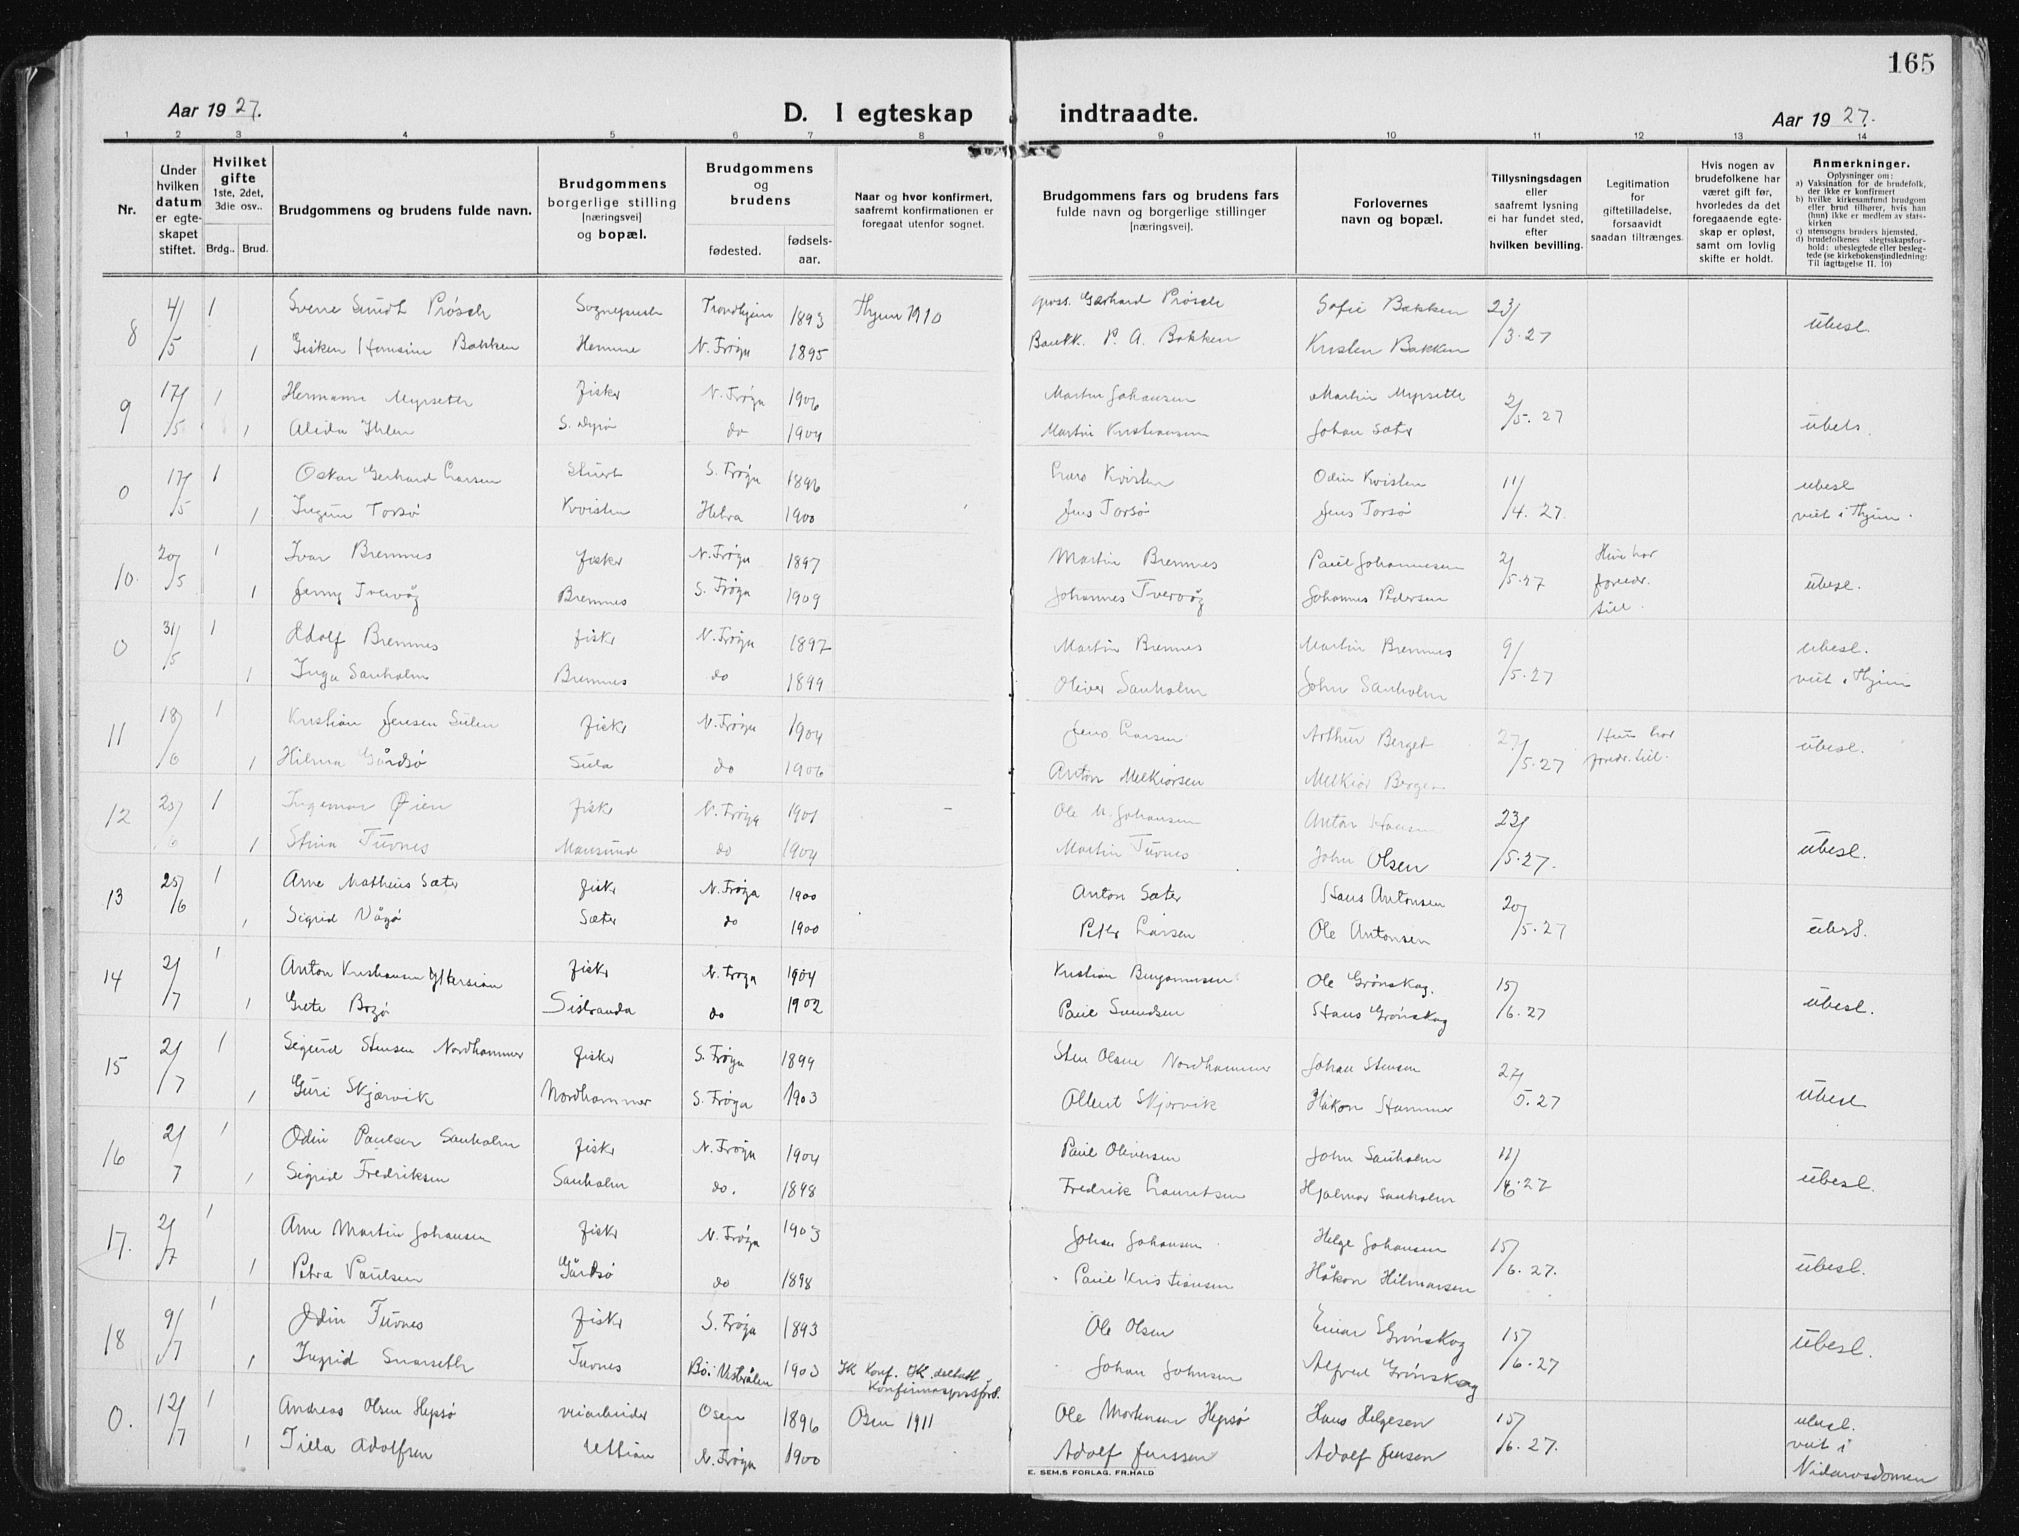 165
Aar 1927.
D. I egteskap indtraadte.
Aar 1927.
1 2 3 4 5 6 7 8 9 10 11 12 13 14
Nr.
Under hvilken datum er egteskapet stiftet.
Hvilket gifte
1ste, 2det, 3die osv..
Brdg.. Brud.
Brudgommens og brudens fulde navn.
Brudgommens borgerlige stilling [næringsvei] og bopæl.
Brudgommens og brudens
fødested.
fødsels-aar.
Naar og hvor konfirmert, saafremt konfirmationen er foregaat utenfor sognet.
Brudgommens fars og brudens fars fulde navn og borgerlige stillinger [næringsvei].
Forlovernes navn og bopæl.
Tillysningsdagen eller saafremt lysning ei har fundet sted, efter hvilken bevilling.
Legitimation for giftetilladelse, forsaavidt saadan tiltrænges.
Hvis nogen av brudefolkene har været gift før, hvorledes da det foregaaende egteskap er opløst, samt om lovlig skifte er holdt.
Anmerkninger.
Oplysninger om:
a) Vaksination for de brudefolk, der ikke er konfirmert
b) hvilke kirkesamfund brudgom eller brud tilhører, hvis han (hun) ikke er medlem av statskirken
c) utensogns bruders hjemsted,
d) brudefolkenes slegtsskapsforhold: ubeslegtede eller beslegtede (se kirkebokens indledning: Til iagttagelse II. 10)
8 4/5 1 Sverre Smidt Prøsch Sogneprest Trondhjem 1893 Thjem 1910 Gerhard Prøsch Sofie Bakken 23/3.27 ubesl.
1 Gisken Bakken Hemne N. Frøya 1895 Bankk. P. A. Bakken Kristen Bakken
9 17/5 1 Hermann Myrseth fisker N. Frøya 1906 Martin Johansen Martin Myrseth 2/5.27 ubesl.
1 Alida Ihlen S. Dyrø do 1904 Martin Kristiansen Johan Sæter
0 17/5 1 Oskar Gerhard Larsen S. Frøya 1896 Lars Kvisten Odin Kvisten 11/4.27. ubesl
1 Torsø Kvisten Hitra 1900 Jens Torsø Jens Torsø viet i Thjem.
10. 20/5 1 Ivar Bremnes fisker N. Frøya 1897 Martin Bremnes Paul Johannesen 2/5.27 Hun har foreldr. till. ubesl.
1 Jenny Tvervåg Bremnes S. Frøya 1909 Johannes Tvervåg Johannes Pedersen
0 31/5 1 Adolf Bremnes fisker N. Frøya 1897 Martin Bremnes Martin Bremnes 9/5.27 ubesl.
1 Inga Sanholm Bremnes do 1899 Oliver Sanholm John Sanholm viet i Thjem
11 18/6 1 Kristian Jensen Sulen fisker N. Frøya 1904 Jens Larsen Arthur Berget 27/5.27 Hun har foreldr. till. ubesl.
1 Hilma Gårdsø Sula do 1906 Anton Melkiorsen Melkior
12 20/6 1 Ingemar Øien fisker N. Frøya 1901 Ole M. Johansen Anton Hansen 23/5.27. ubesl.
1 Stina Tuvnes Mausund do 1904 Martin Tuvnes John Olsen
13 25/6 1 Arne Mathius Sæter fisker N. Frøya 1900 Anton Sæter Hans Antonsen 20/5.27 ubesl.
1 Sigrid Vågø Sæter do 1900 Peter Larsen Ole Antonsen
14 2/7 1 Anton Kristiansen Yttersian fisker N. Frøya 1904 Kristian Benjaminsen Ole Grønskag. 15/6.27 ubesl.
1 Grete Bogø Sistranda do 1902 Paul Svendsen Hans Grønskag
15 2/7 1 Sigurd Stensen Nordhammer fisker S. Frøya 1899 Sten Olsen Nordhammer Johan Stensen 27/5.27 ubesl
1 Guri Skjærvik Nordhammer S. Frøya 1903 Skjærvik Håkon Hammer
16 2/7 1 Odin Paulsen Sanholm fisker N. Frøya 1904 Paul Oliversen John Sanholm 11/6.27 ubesl.
1 Sigrid Fredriksen Sanholm do. 1898 Fredrik Lauritsen Hjalmar Sanholm
17. 2/7 1 Arne Martin Johansen fisker N. Frøya 1903 Johan Johansen Helge Johansen 15/6.27. ubesl.
1 Petra Paulsen Gårdsø do 1898 Paul Kristiansen Håkon Hilmarsen
18 9/7 1 Odin Tuvnes fisker S. Frøya 1893 Ole Olsen Einar Grønskag 15/6.27 ubesl.
1 Ingrid Snarseth Tuvnes Bø. Vesterålen 1903 Ik konf. Ik deltatt Johan Johnsen Alfred Grønskag
0. 12/7 1 Andreas Olsen Hepsø veiarbeider Osen 1896 Osen 1911 Ole Mortensen Hepsø Hans Helgesen 15/6.27. ubesl.
1 Tilla Adolfsen Uttian N. Frøya 1900 Adolf Jenssen Adolf Jensen viet i Nidarosdomen
E. SEM.S FORLAG. FR.HALD